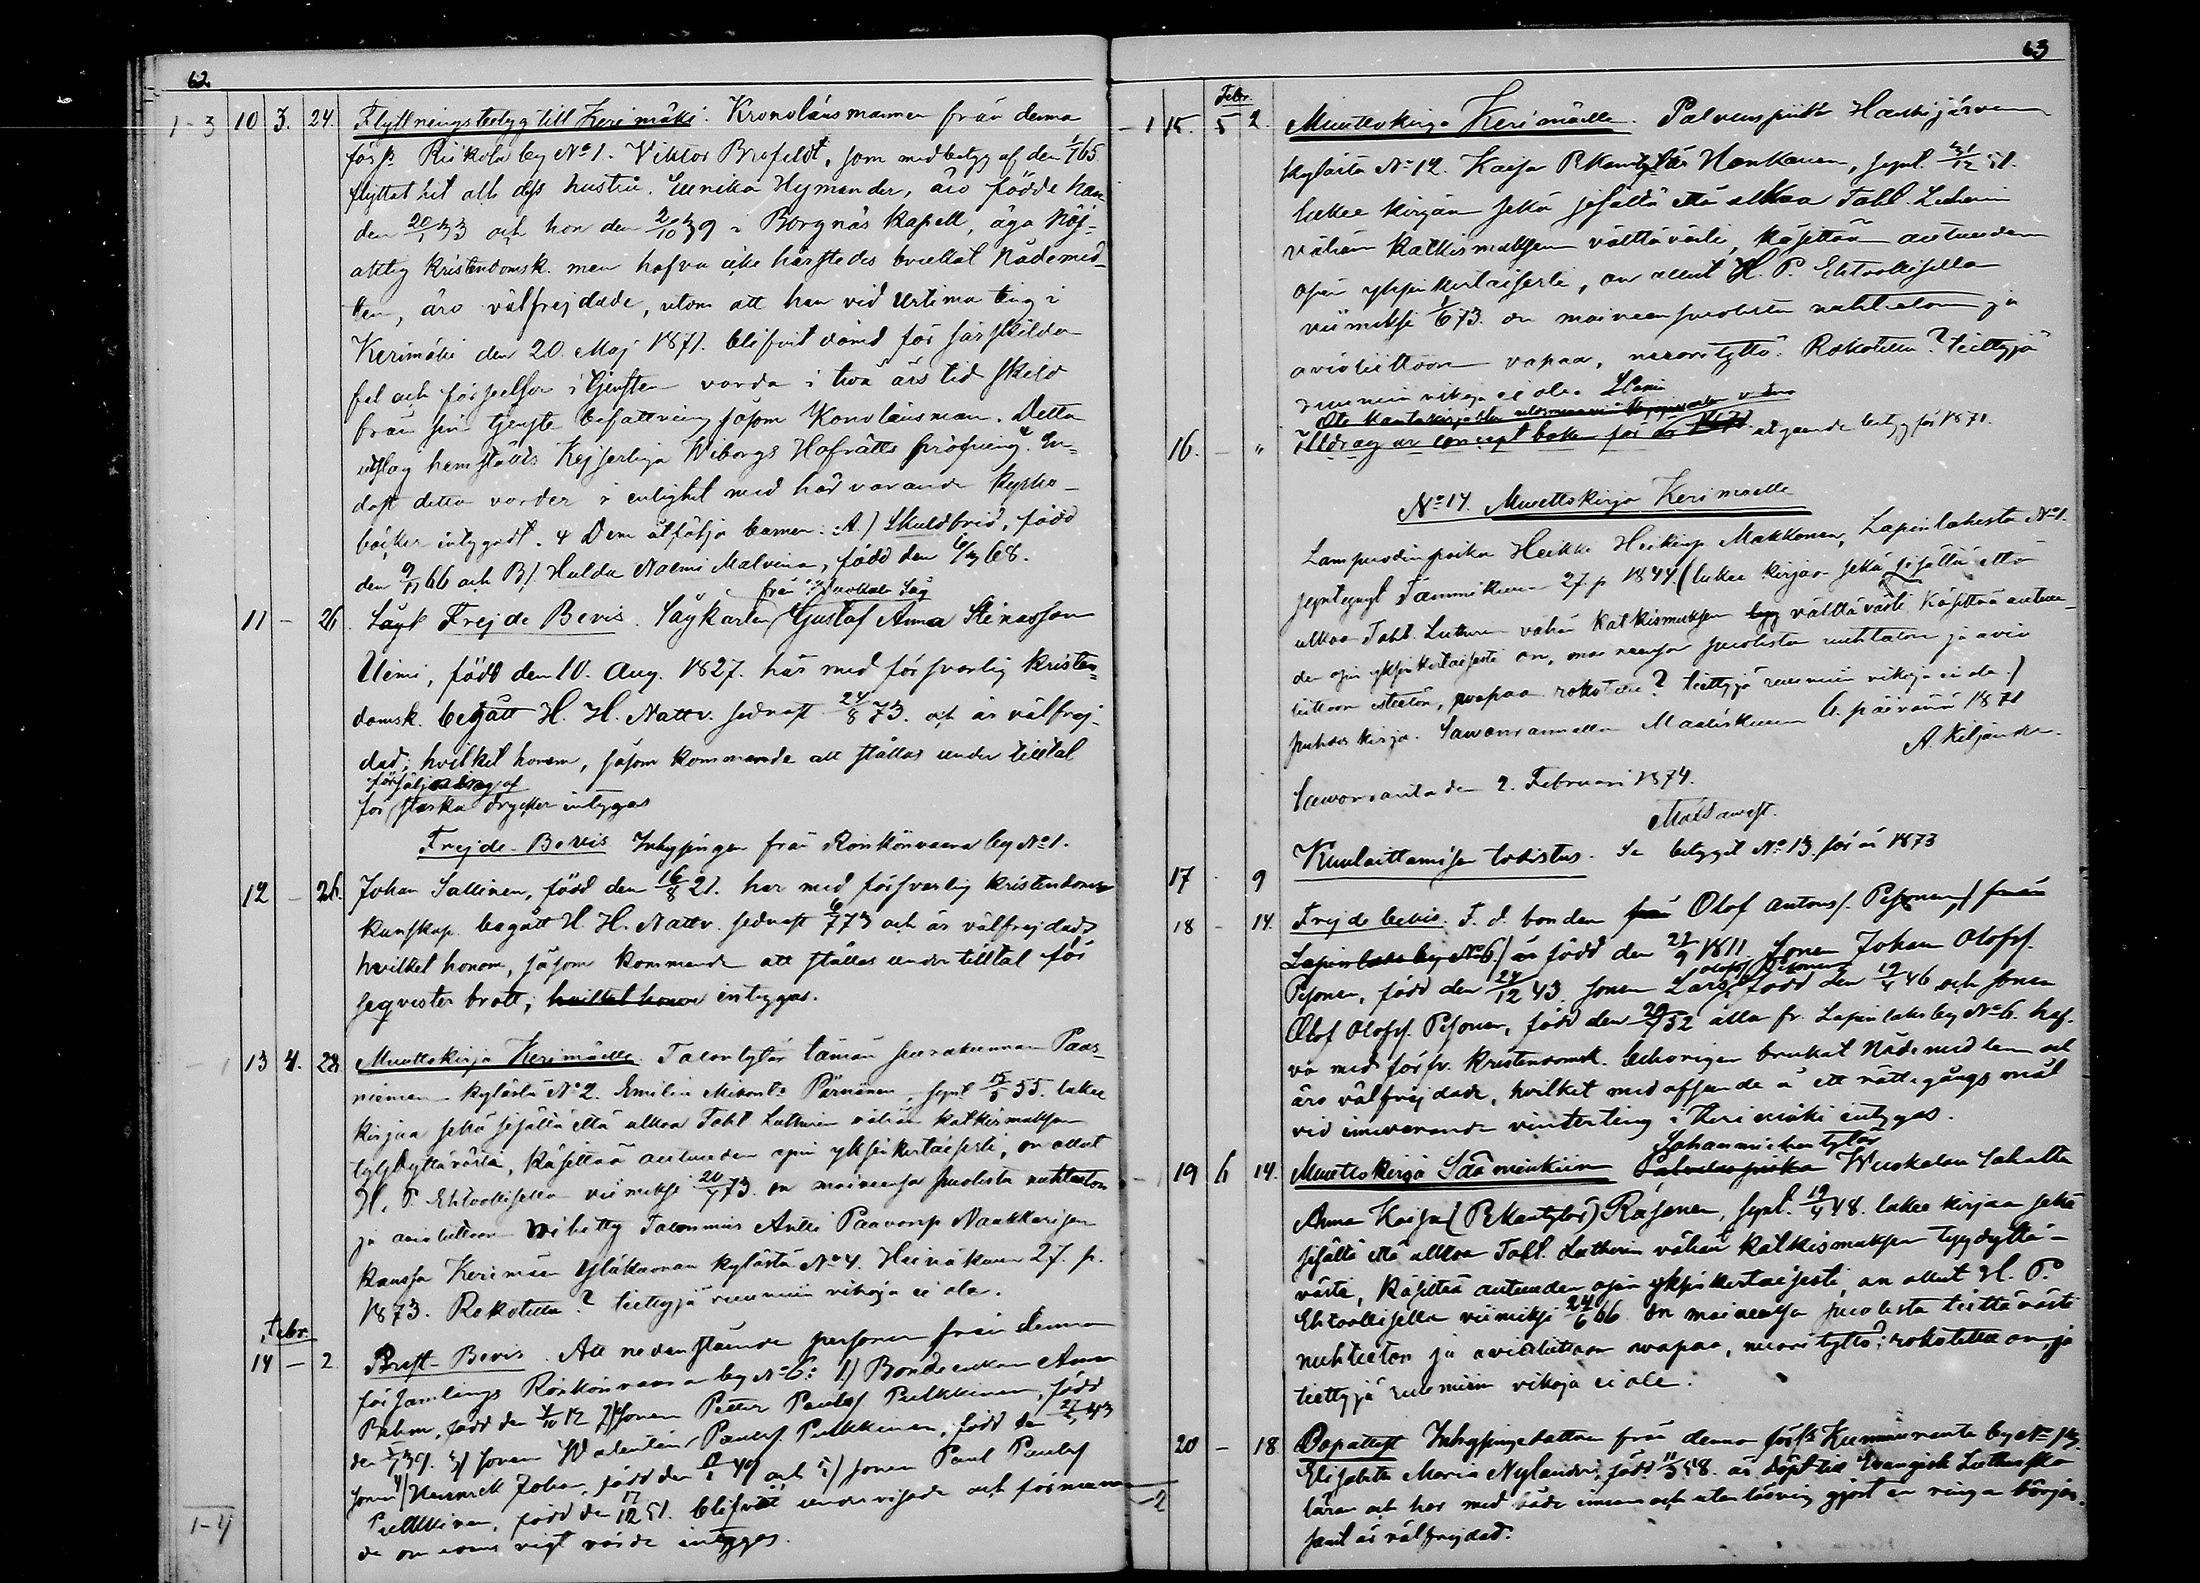 62
1-3 10 3. 24. Flyttningsbetyg till Kerimäki. Kronolänsmannen från denna
förs:s Riikola by No 1. Viktor Brofeldt, som med betyg af den 1/1 65
flyttat hit och dess hustru. Eeenika Hymander, äro födde han
den 20/1 33 och hon den 2/10 39 i Borgnäs kapell, äga nöj-
aktig kristendomsk. men hafva icke härstedes brukat Nådemed-
len, äro välfrejdade, utom att han vid Urtima ting i
Kerimäki den 20. Maj 1871. blifvit dömd för särskilda
fel och förseelser i tjensten varda i två års tid skild
från sin tjenste befattning såsom Kronolänsman. Detta
utslag hemställts Kejserliga Wiborgs Hofrätts pröfning. En-
dast detta varder i enlighet med härvarande kyrko-
böcker intygadt. Dem åtfölja barnen: A) Skuldfrid, född
den 9/11 66 och B). Hulda Naemi Malvina, född den 6/3 68.
11 - 26. Sågk Frejde Bevis. Sågkarlen från Vuokala Såg Gustaf Anna Steinasson
Uimi, född den 10. Aug. 1827. har med försvarlig kristen-
domsk. begått H. H. Nattv. sednast 24/8 73. och är välfrej-
dad; hvilket honom, såsom kommande att ställas under tilltal
försäljning af
för starka drycker intygas
Frejde-Bevis Inhysingen från Ronkönvaara by No 1.
12 - 26. Johan Sallinen, född den 16/8 21. har med försvarlig kristendoms
kunskap begått H. H. Nattv. sednast 6/7 73 och är välfrejdad
hvilket honom, såsom kommande att ställas under tilltal för
seqvester brott, hvilket honom intygas.
-1 13 4. 28 Muuttokirja Kerimäelle. Talontytär tämän seurakunnan Paas-
niemen kylästä No 2. Emilia Mikont:r Pärnänen, synt. 15/5 55. lukee
kirjaa sekä sisältä että ulkoa Toht Lutherin vähän katkismuksen
tyydyttävästi, käsittää autuuden opin yksinkertaisesti, on ollut
H. P. Ehtoollisella viimeksi 20/7 73. on maineensa puolesta nuhteeton
ja avioliittoon vihitty Talonmies Antti Paavonp Naukkarisen
kanssa Kerimäen Yläkuonan kylästä No 4. Heinäkuun 27. p.
1873. Rokotettu? tiettyjä ruumiin vikoja ei ole.
Febr.
14 - 2 Prest-Bevis. Att nedanstående personer från denna
församlings Ronkönvaara by No 6: 1) Bondeenkan Anna
Behm, född den 4/10 12 2) Sonen Petter Paulsf Pulkkinen, född
den 5/7 39. 3) Sonen Walentin Paulsf. Pulkkinen, född den 27/2 43
Sonen 4) Heinrich Johan, född den 17/1 49 och 5) sonen Paul Paulsf
Pulkkinen, född den 17/12 51. blifvit undervisade och förmana-
de om edens vigt värde intygas.
1-4
63
Febr.
-1 15. 5 2. Muuttokirja Kerimäelle. Palveuspiika Haukijärven
kylästä No 12. Kaisa Pekantytär Honkanen, synt. 31/12 51.
lukee kirjaa sekä sisältä että ulkoa Toht. Lutherin
vähän katkismuksen välttävästi, käsittää autuuden
opin yksinkertaisesti, on ollut H. P. Ehtoollisella
viimeksi 1/6 73. on maineensa puolesta nuhteeton ja
avioliittoon vapaa, nuori tyttö. Rokotettu? tiettyjä
ruumiin vikoja ei ole.
16. - " Utdrag ur concept boken för år 1871 utgående betyg för 1871.
No 14. Muuttokirja Kerimäelle
Lampuodinpoika Heikki Heikinp Makkonen, Lapinlahesta No 1.
syntynyt Tammikuun 27. p 1844. (lukee kirjaa sekä sisältä että
ulkoa Toht. Lutherin vähän katkismuksen tyy välttävästi käsittää autuu-
den opin yksinkertaisesti on, maineensa puolesta nuhteeton ja avio
liittoon esteetön, vapaa rokotettu? tiettyjä ruumiin vikoja ei ole)
puhdas kirja. Sawonrannalla Maaliskuun 6. päivänä 1871
A. Kiljander.
Sawonranta den 2. Februari 1874.
17 . 9 Kuuluttamisen todistus. Se betyget No 13 för år 1873
18 - 14. Frejde bevis. F. d. bonden från Olof Antonsf. Pesonen, från
Lapinlaks by No 6.) är född den 22/9 1811. Sonen Johan Olofsf.
Pesonen, född den 24/12 43. Sonen Lars Olofsf Pesonen född den 19/4 46 och Sonen
Olof Olofsf. Pesonen, född den 29/4 52 alla fr. Lapinlaks by No 6. haf-
va med försv. kristendomsk. behörigen brukat Nådemedlen och
äro välfrejdade, hvilket med afseende å ett rättegångs mål
vid innevarande vinterting i Kerimäki intygas.
19 6 14. Muuttokirja Sääminkiin Itsenäisentytär Palveluspiika Wuokalan Sahalta
Anna Kaisa (Pekantytär) Räsänen, synt. 19/4 48. lukee kirjaa sekä
sisältä että ulkoa Toht. Lutherin vähän katkismuksen tyydyttä-
västi, käsittää autuuden opin yksinkertaisesti, on ollut H. P.
Ehtoollisella viimeksi 24/6 66. on maineensa puolesta tiettävästi
nuhteeton ja avioliittoon vapaa, nuori tyttö?; rokotettu on, ja
tiettyjä ruumiin vikoja ei ole.
20 - 18 Dopattest Inhysingedottren från denna förs:s Kummunranta by No
Elisabeta Maria Nylander, född 11/3 58. är döpt till Evangelisk Lutherska
läran och har med både innan och utan läsning gjort en ringa början
samt är välfrejdad.
-2